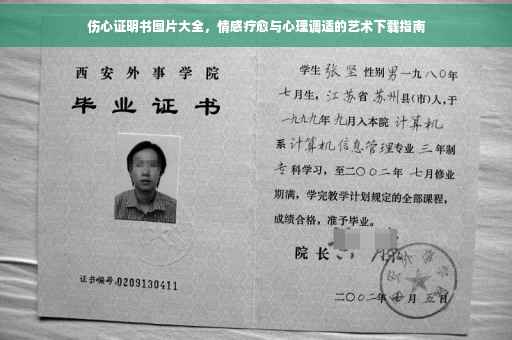 伤心证明书图片大全，情感疗愈与心理调适的艺术下载指南
西安外事学院
毕业证书
证书编号:0209130411
学生 张坚 性别 男 一九八〇年
七月生，江苏省 苏州县(市)人,于
一九九九年 九月入本院 计算机
系 计算机信息管理专业 三 年制
专科学习，至二〇〇二年 七月修业
期满，学完教学计划规定的全部课程，
成绩合格，准予毕业。
院长
二〇〇二年 七 月 五 日